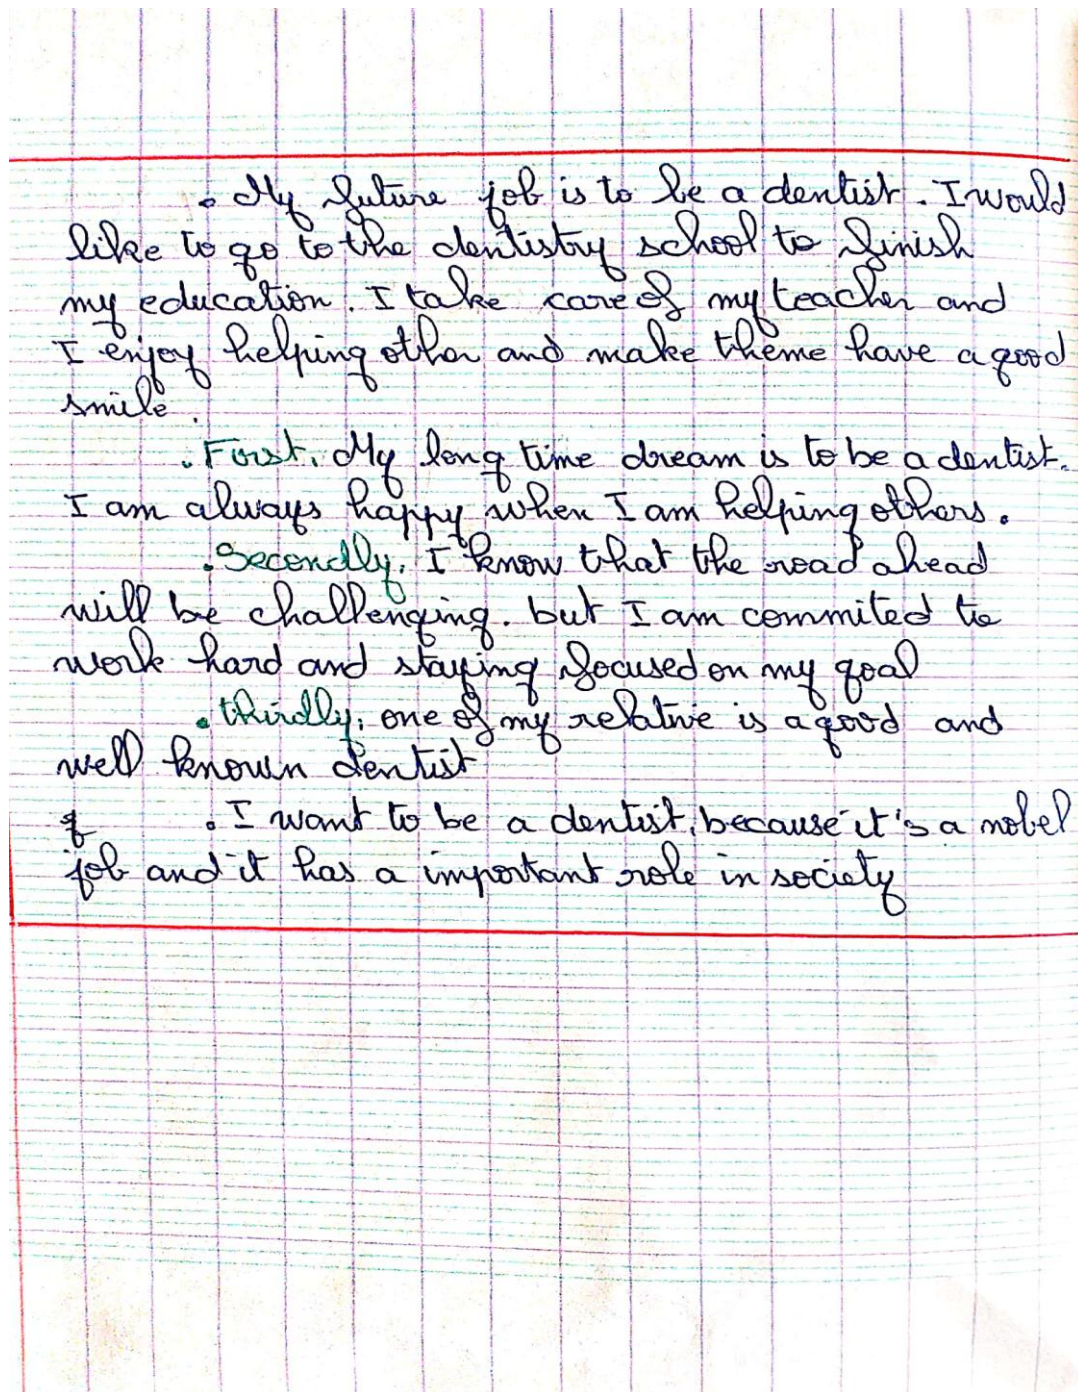 . My future job is to be a dentist. I would
like to go to the dentistry school to finish
my education. I take care of my teacher and
I enjoy helping other and make theme have a good
smile.
. First, My long time dream is to be a dentist.
I am always happy when I am helping others.
. Secondly, I know that the road ahead
will be challenging. but I am commited to
work hard and staying focused on my goal
. thirdly, one of my relative is a good and
well known dentist
. I want to be a dentist, because it's a nobel
job and it has a important role in society